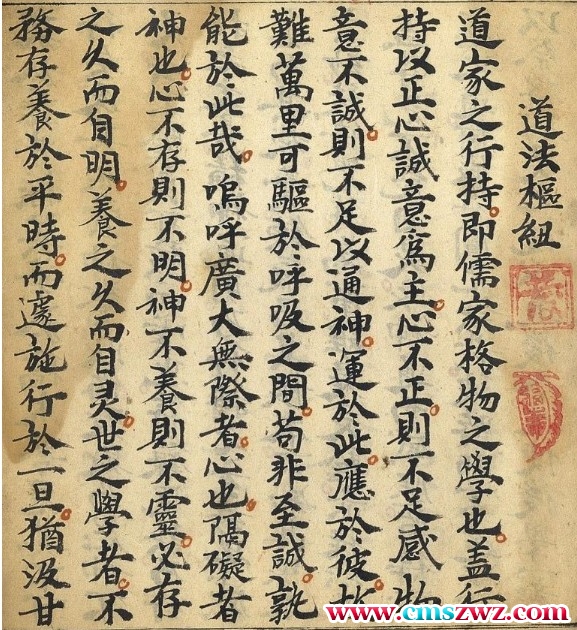 道法樞紐
道家之行持。即儒家格物之學也。盖行
持以正心誠意爲主。心不正則不足感物。
意不誠則不足以通神。運於此。應於彼。故
難萬里可驅於呼吸之間。苟非至誠。孰
能於此哉。嗚呼廣大無際者心也。隔礙者
神也。心不存則不明。神不養則不靈。必存
之久而自明。養之久而自灵。世之學者。不
務存養於平時。而遽施行於一旦。猶汲甘
www.cmszwz.com